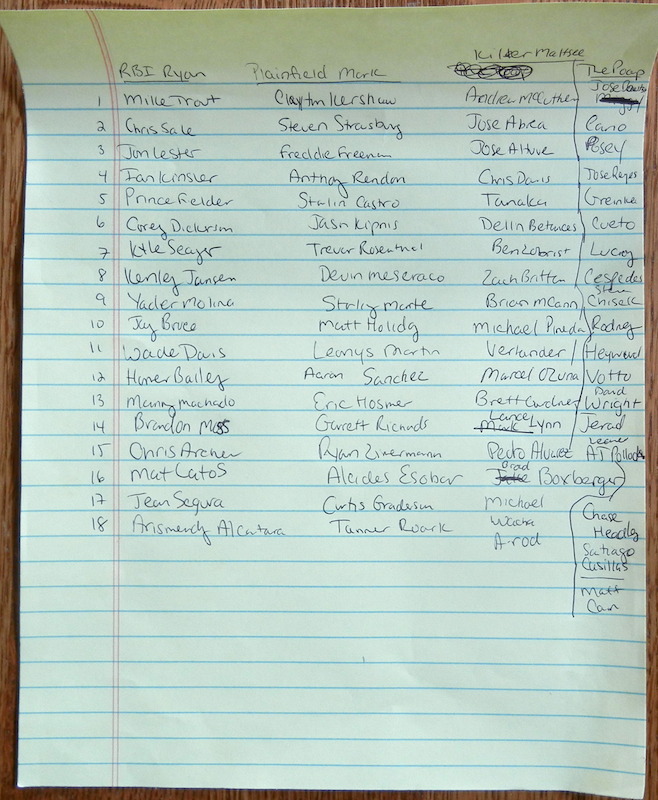 Kilter Maltsee
RBI Ryan Plainfield Mark The Poop
Jose Bautista
1 Mike Trout Clayton Kershaw Andrew McCuthen
2 Chris Sale Steven Strasburg Jose Abrea Cano
3 Jon Lester Freddie Freeman Jose Altuve Posey
4 Ian Kinsler Anthony Rendon Chris Davis Jose Reyes
5 Prince Fielder Starlin Castro Tanaka Greinke
6 Corey Dickerson Jason Kipnis Dellin Betances Cueto
7 Kyle Seager Trevor Rosenthal Ben Zobrist Lucroy
8 Kenley Jansen Devin meseraco Zach Britton Cespedes
Steve
9 Yadier Molina Starling Marte Brian McCann Chisek
10 Jay Bruce Matt Holliday Michael Pineda Rodney
11 Wade Davis Leonys Martin Verlander Heyward
12 Homer Bailey Aaron Sanchez Marcel Ozuna Votto
David
13 Manny machado Eric Hosmer Brett Gardner Wright
14 Brandon Moss Garrett Richards Lance Lynn Jered
Weaver
15 Chris Archer Ryan Zimermann Pedro Alvarez AJ Pollock
16 Mat Latos Alcides Esobar Brad Boxberger
17 Jean Segura Curtis Granderson Michael Chase
Wacha Headley
18 Arismendy Alcantara Tanner Roark A-rod Satiago
Casillas
Matt
Cain